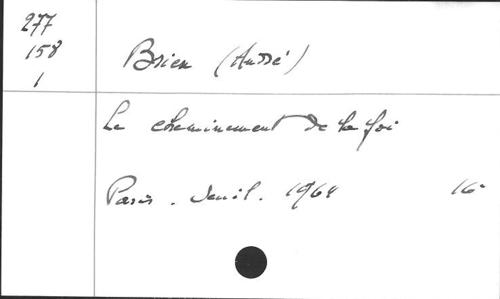 277
158
1
Brien (André)
Le cheminement de la foi
Paris. Seuil. 1964 16°